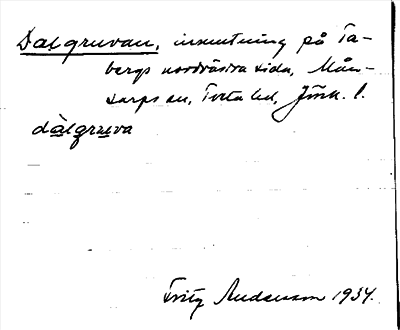 Dalgruvan, insmutning på Ta-
bergs nordvästra sida, Mån-
sarps sn, Tveta hd, Jönk. l.
dàlgruva
Fritz Andersson 1934.